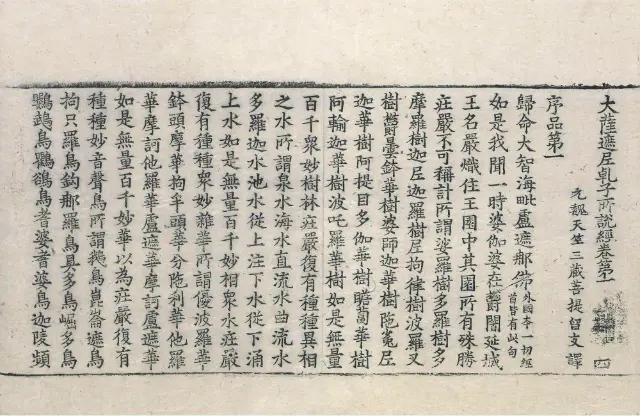 大薩遮尼乹子所說經卷第一 四
元魏天竺三藏菩提留支譯
序品第一
歸命大智海毗盧遮那佛外國本一切經首皆有此句
如是我聞一時婆伽婆在欝闍延城
王名嚴熾住王園中其園所有殊勝
莊嚴不可稱計所謂娑羅樹多羅樹多
摩羅樹迦尼迦羅樹尼拘律樹波羅叉
樹欝曇鉢華樹婆師迦華樹陁㝹尼
迦華樹阿提目多伽華樹瞻蔔華樹
阿輸迦華樹波吒羅華樹如是無量
百千衆妙樹林莊嚴復有種種異相
之水所謂泉水海水直流水曲流水
多羅迦水池水從上注下水從下涌
上水如是無量百千妙相衆水莊嚴
復有種種衆妙雜華所謂優波羅華
鉢頭摩華拘牟頭華分陁利華他羅
華摩訶他羅華盧遮華摩訶盧遮華
如是無量百千妙華以為莊嚴復有
種種妙音聲鳥所謂鳥崑崙遮鳥
拘只羅鳥鈎那羅鳥具多鳥崛多鳥
鸚鵡鳥鸜鵒鳥耆婆耆婆鳥迦陵頻